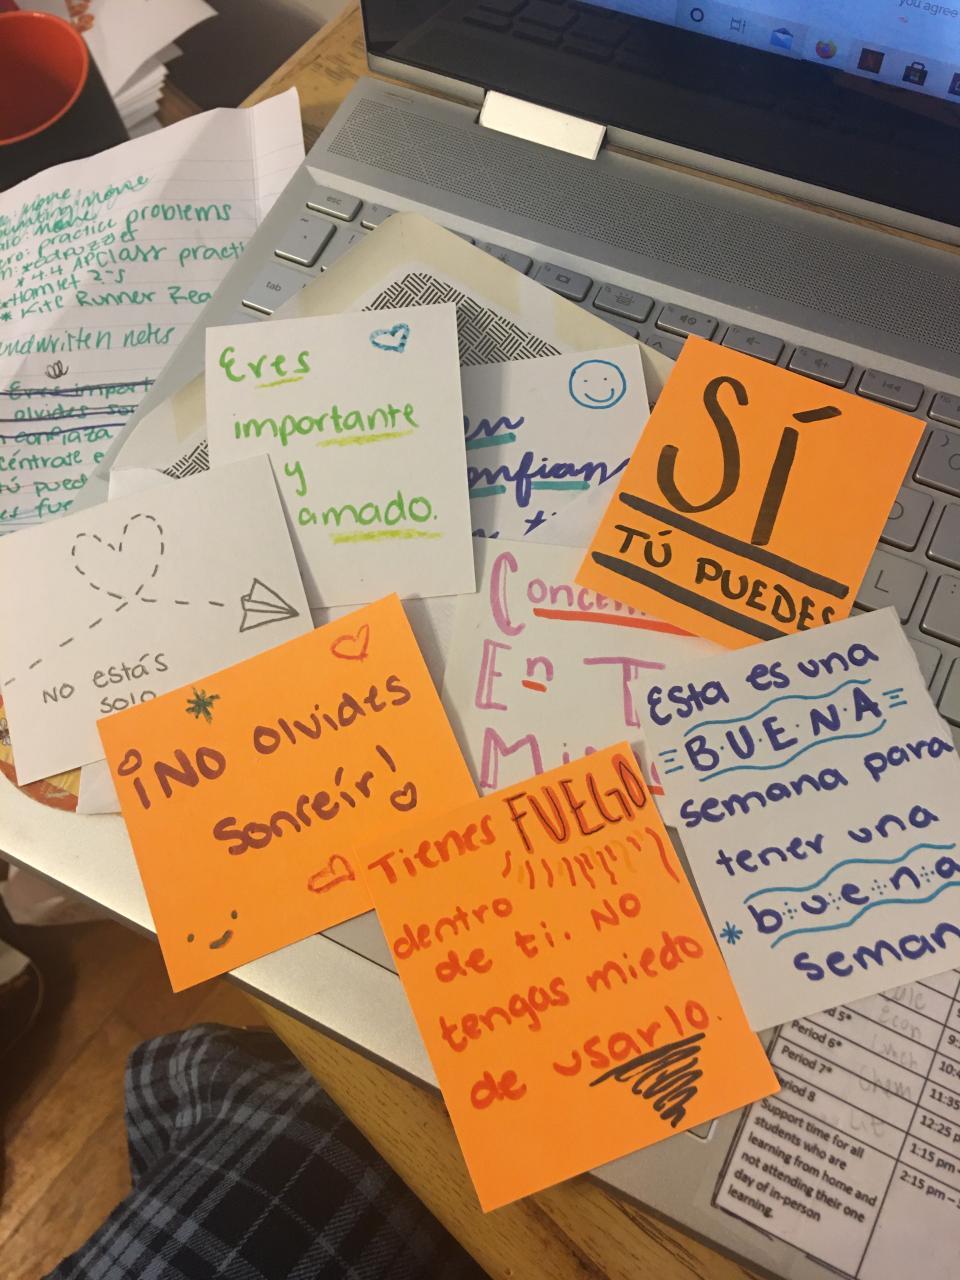 you agree
esc
tab
problems
practice problems
* edpuzzles
* 4.4 AP Class practi
Hamlet 2's
* Kite Runner Rea
ndwritten notes
Eres import
olvides son
n confiaza
céntrate e
tú pued
es fue
Eres
importante
y
amado.
en
onfian
SÍ
TÚ PUEDES
NO estás
solo
Concen
En T
¡NO olvides
sonreír!
Tienes FUEGO
dentro
de ti. No
tengas miedo
de usarlo.
Esta es una
BUENA
semana para
tener una
* buena
seman
L
Econ
d 5*
Period 6*
Period 7*
Period 8
Support time for all
students who are
learning from home and
not attending their one
day of in-person
learning.
9:
10:4
11:35
12:25 p
1:15 pm
2:15 pm –